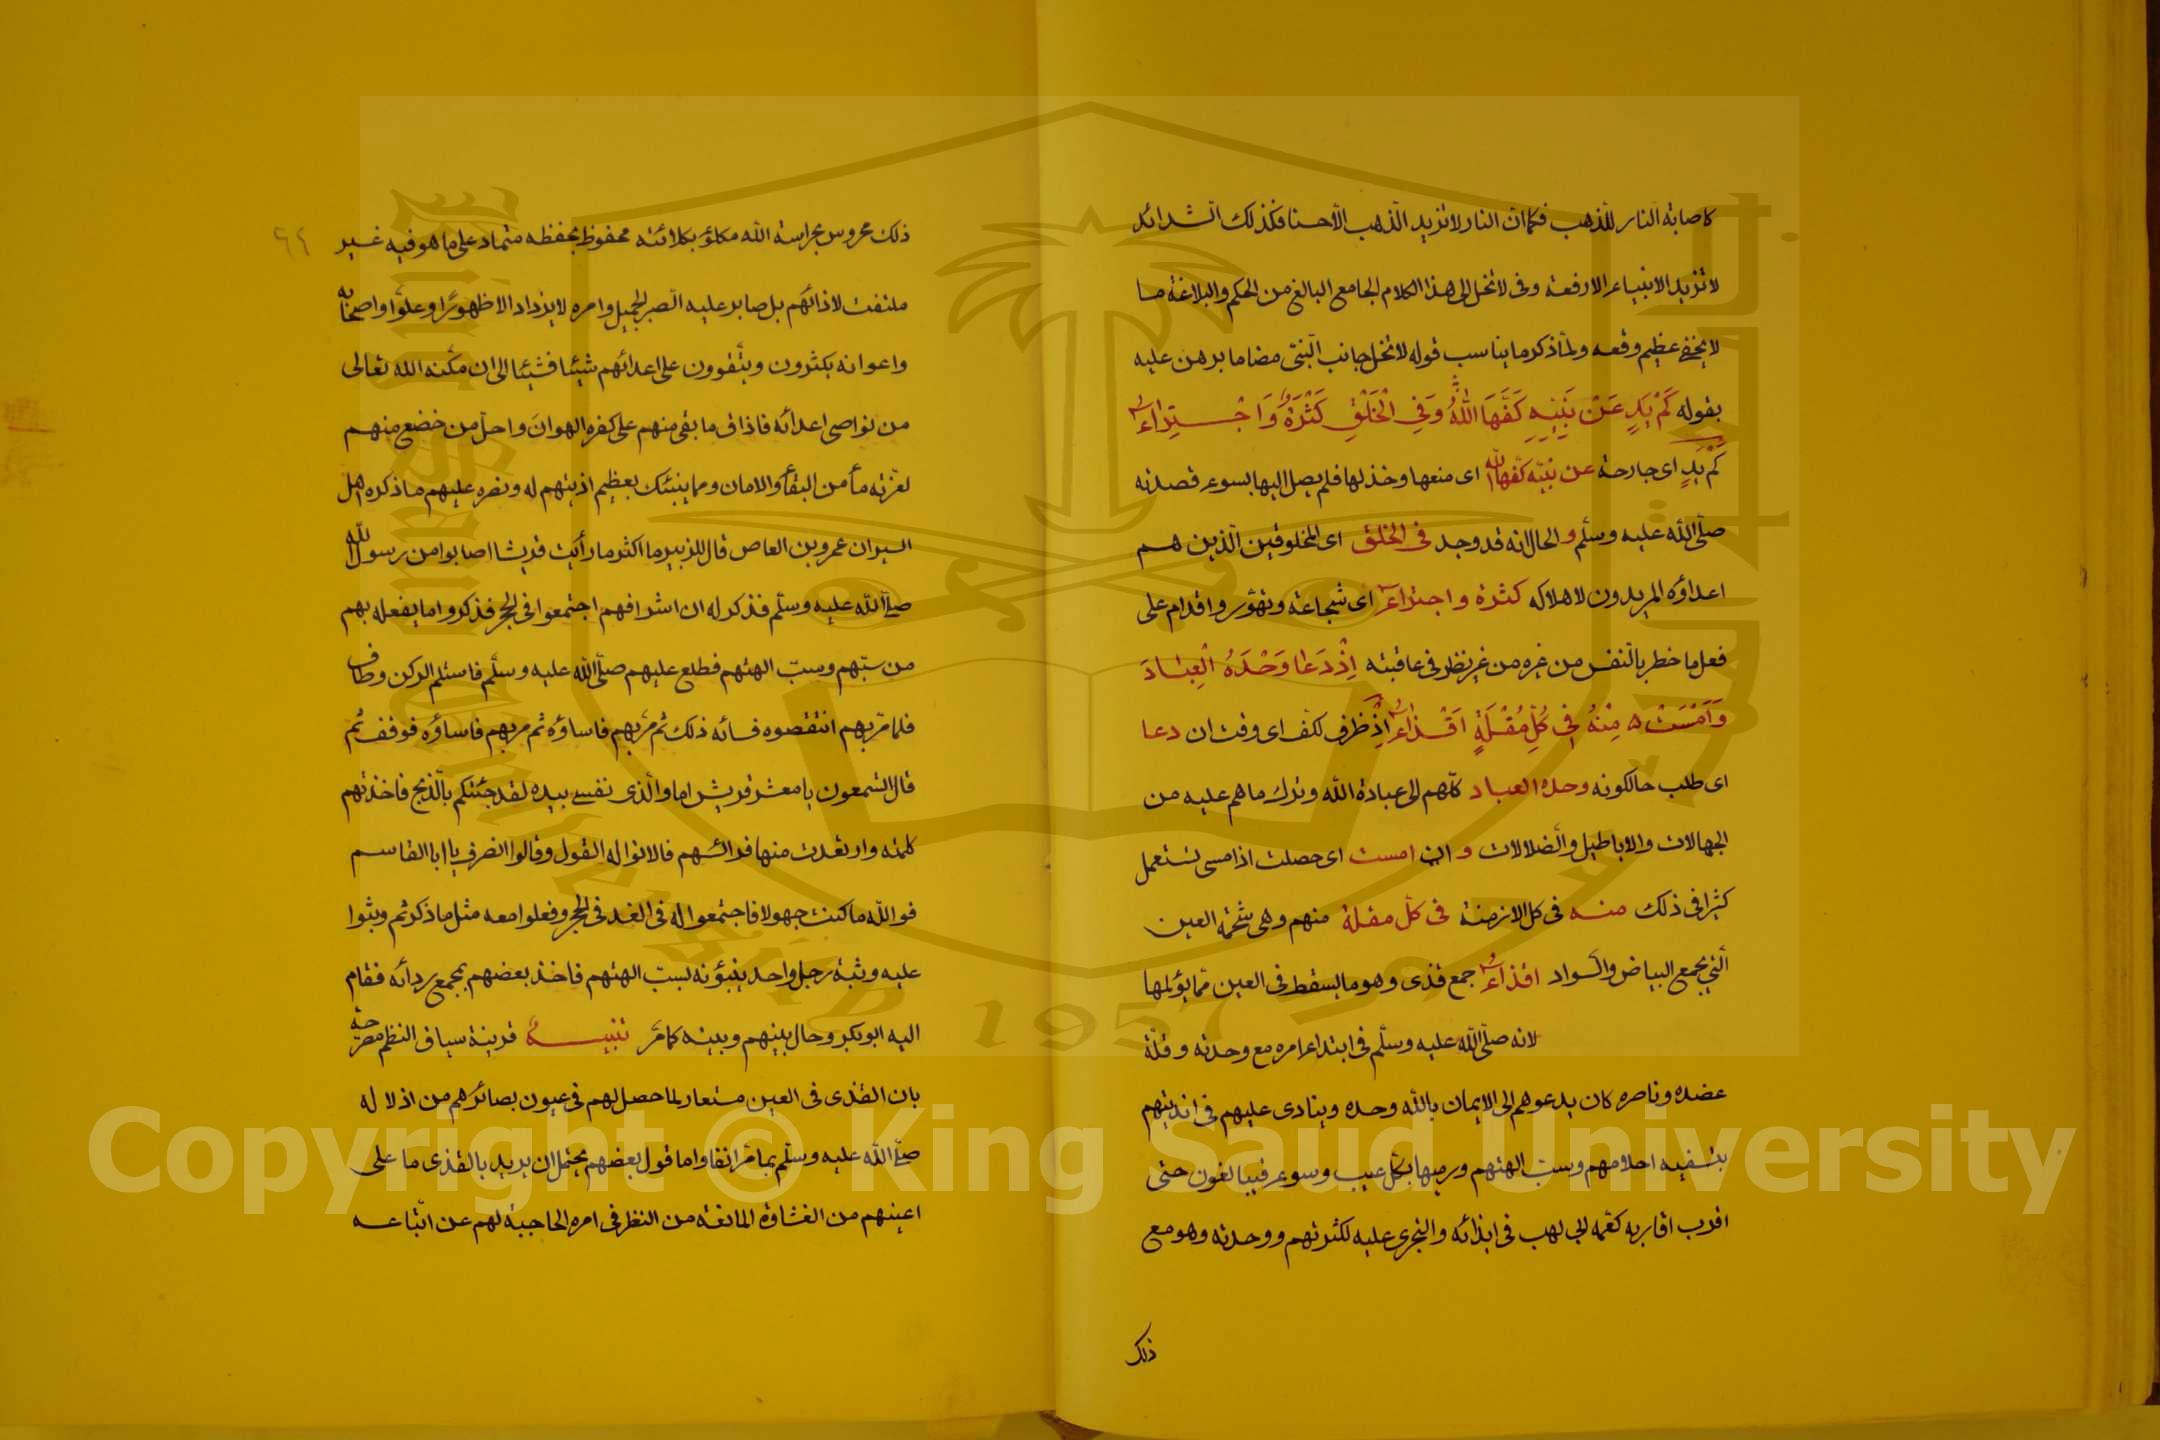 كاصابة النار للذهب فكما ان النار لا تزيد الذهب الا حسنا فكذلك الشدائد
لا تزيد الانبياء الا رفعة وفى لا تخل الى هذا الكلام الجامع البالغ من الحكم والبلاغة ما
لا يخفى عظيم وقعه ولما ذكر ما يناسب قوله لا تخل جانب النبى مضاما برهن عليه
بقوله كَمْ يَدٍ عَنْ نَبِيِّهِ كَفَّهَا اللهُ وَفِي الْخَلْقِ كَثْرَةٌ وَاجْتِرَاءُ
كَمْ يَدٍ اى جارحة عن نبيّه كفّها الله اى منعها وخذلها فلم يصل اليها بسوء قصدته
صلّى الله عليه وسلّم و الحال انه قد وجد فى الخلق اى المخلوقين الّذين هم
اعداؤه المريدون لاهلاكه كثرة واجتراء اى شجاعة وتهوّر واقدام على
فعل ما خطر بالنفس من غيره من غير نظر فى عاقبته اِذْ دَعَا وَحْدَهُ الْعِبَادَ
وَاَمْسَتْ ٥ مِنْهُ فِي كُلِّ مُقْلَةٍ اَقْذَاءُ اِذْ ظرف لكف اى وقت ان دعا
اى طلب حالكونه وحده العباد كلّهم الى عبادة الله وترك ما هم عليه من
الجهالات والاباطيل والضلالات و الىن امست اى حصلت اذ امسى تستعمل
كثيرا فى ذلك منه فى كل الازمنة فى كلّ مقلة منهم وهى شحمة العين
الّتي تجمع البياض والسواد اقذاء جمع قذى وهو ما يسقط فى العين ممّا يؤلمها
لانه صلّى الله عليه وسلّم فى ابتداء امره مع وحدته وقلّة
عضده وناصره كان يدعوهم الى الايمان بالله وحده وينادى عليهم فى انديتهم
بتسفيه احلامهم وسبّ الهتهم ورميها بكلّ عيب وسوء فيبالغون حتى
اقرب اقاربه كعمّه ابى لهب فى ايذائه والتجرى عليه لكثرتهم ووحدته وهو مع
ذلك
٦٤
ذلك محروس بحراسة الله مكلؤ بكلائته محفوظ بحفظه متماد على ما هو فيه غير
ملتفت لاذائهم بل صابر عليه الصبر الجميل وامره لا يزداد الا ظهورًا وعلوًّا واصحابه
واعوانه يكثرون ويتقوون على اعدائهم شيئا فشيئا الى ان مكّنه الله تعالى
من نواصى اعدائه فاذاق ما بقى منهم على كفره الهوان واحلّ من خضع منهم
لعزّته مأمن البقاء والامان ومما ينبئك بعظيم اذيتهم له ونصره عليهم ما ذكره اهل
السير ان عمرو بن العاص قال للزبير ما اكثر ما رأيت قريشا اصابوا من رسول الله
صلّى الله عليه وسلّم فذكر له ان اشرافهم اجتمعوا فى الحجر فذكروا ما يفعله بهم
من سبّهم وسبّ الهتهم فطلع عليهم صلّى الله عليه وسلّم فاستلم الركن وطاف
فلما مرّ بهم انتقصوه فسائه ذلك ثم مرّ بهم فاساؤه ثم مر بهم فاساؤه فوقف ثم
قال اتسمعون يا معشر قريش اما والّذى نفسى بيده لقد جئتكم بالذبح فاخذتهم
كلمته وارتعدت منها فرائسهم فالانوا له القول وقالوا انصرف يا ابا القاسم
فوالله ما كنت جهولا فاجتمعوا له فى الغد فى الحجر وفعلوا معه مثل ما ذكر ثم وثبوا
عليه وثبة رجل واحد ينبؤنه لسبّ الهتهم فاخذ بعضهم بمجمع ردائه فقام
اليه ابو بكر وحال بينهم وبينه كما مرّ تنبيه قرينة سياق النظم مصرحة
بان القذى فى العين مستعار لما حصل لهم فى عيون بصائرهم من اذلاله
صلّى الله عليه وسلّم بما مرّ انفا واما قول بعضهم يحتمل ان يريد بالقذى ما على
اعينهم من الغشاوة المانعة من النظر فى امره الحاجبة لهم عن اتباعه
Copyright © King Saud University
King Saud University
1957